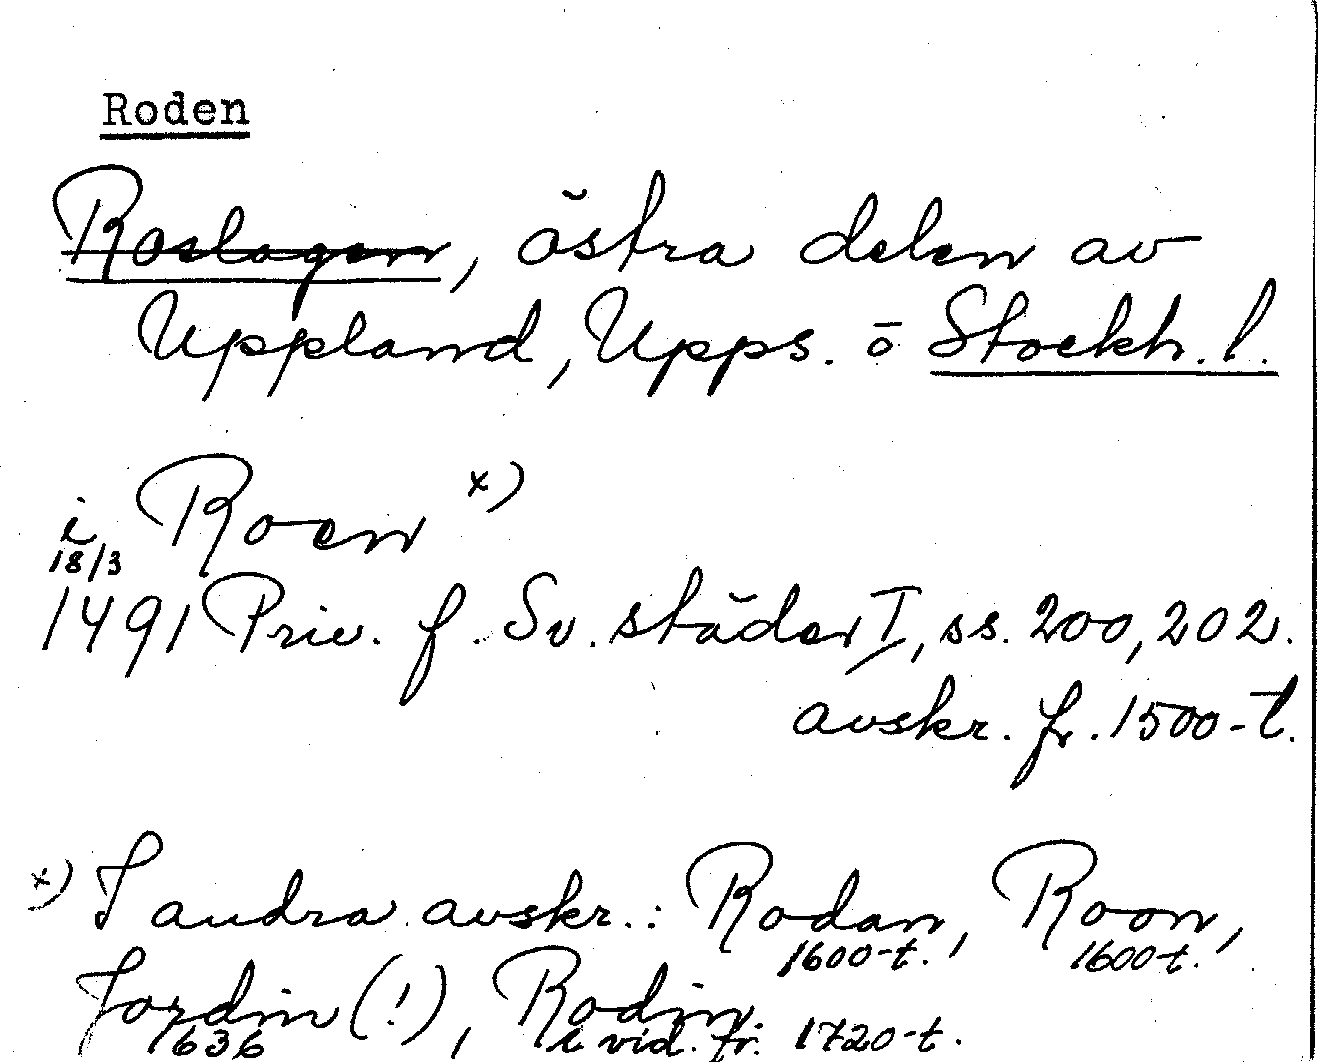 Roden
Roslagen, östra delen av
Uppland, Upps. o Stockh. l.
i Roen x)
18/3
1491 Priv. f. Sv. städer I, ss. 200, 202.
avskr. fr. 1500-t.
x) I andra avskr.: Rodan, Roon,
1600-t. 1600-t.
Jordin (!), Rodin
1636 i vid. fr. 1720-t.